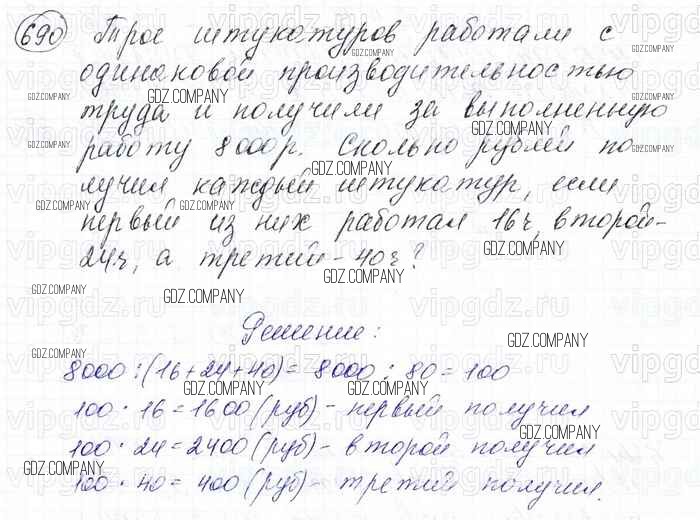 690 Трое штукатуров работали с
одинаковой производительностью
труда и получили за выполненную
работу 8000р. Сколько рублей по
лучил каждый штукатур, если
первый из них работал 16ч, второй-
24ч, а третий - 40ч?
Решение:
8000 : (16+24+40) = 8000 : 80 = 100
100 · 16 = 1600 (руб) - первый получил
100 · 24 = 2400 (руб) - второй получил
100 · 40 = 400 (руб) - третий получил.
GDZ.COMPANY
vipgdz.ru